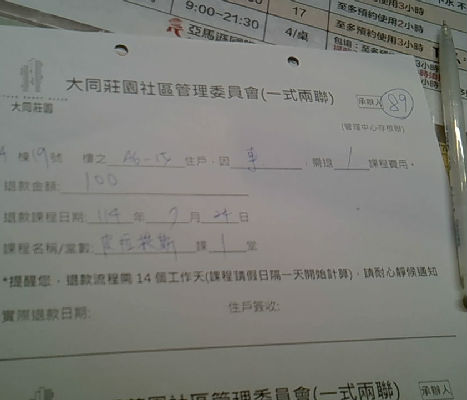 9:00~21:30
17
4/桌
至多預約使用3小時
至多預約使用2小時
至多預約使用3小時
大同莊園社區管理委員會(一式兩聯)
承辦人 89
大同莊園
(管理中心存根聯)
棟19號 樓之 A6-15 住戶,因 事 ,需退 1 課程費用。
退款金額: 100
退款課程日期: 114 年 7 月 24 日
課程名稱/堂數: 皮拉提斯 課 1 堂
*提醒您,退款流程需14個工作天(課程請假日隔一天開始計算),請耐心靜候通知
實際退款日期: 住戶簽收:
社區管理委員會(一式兩聯)
承辦人